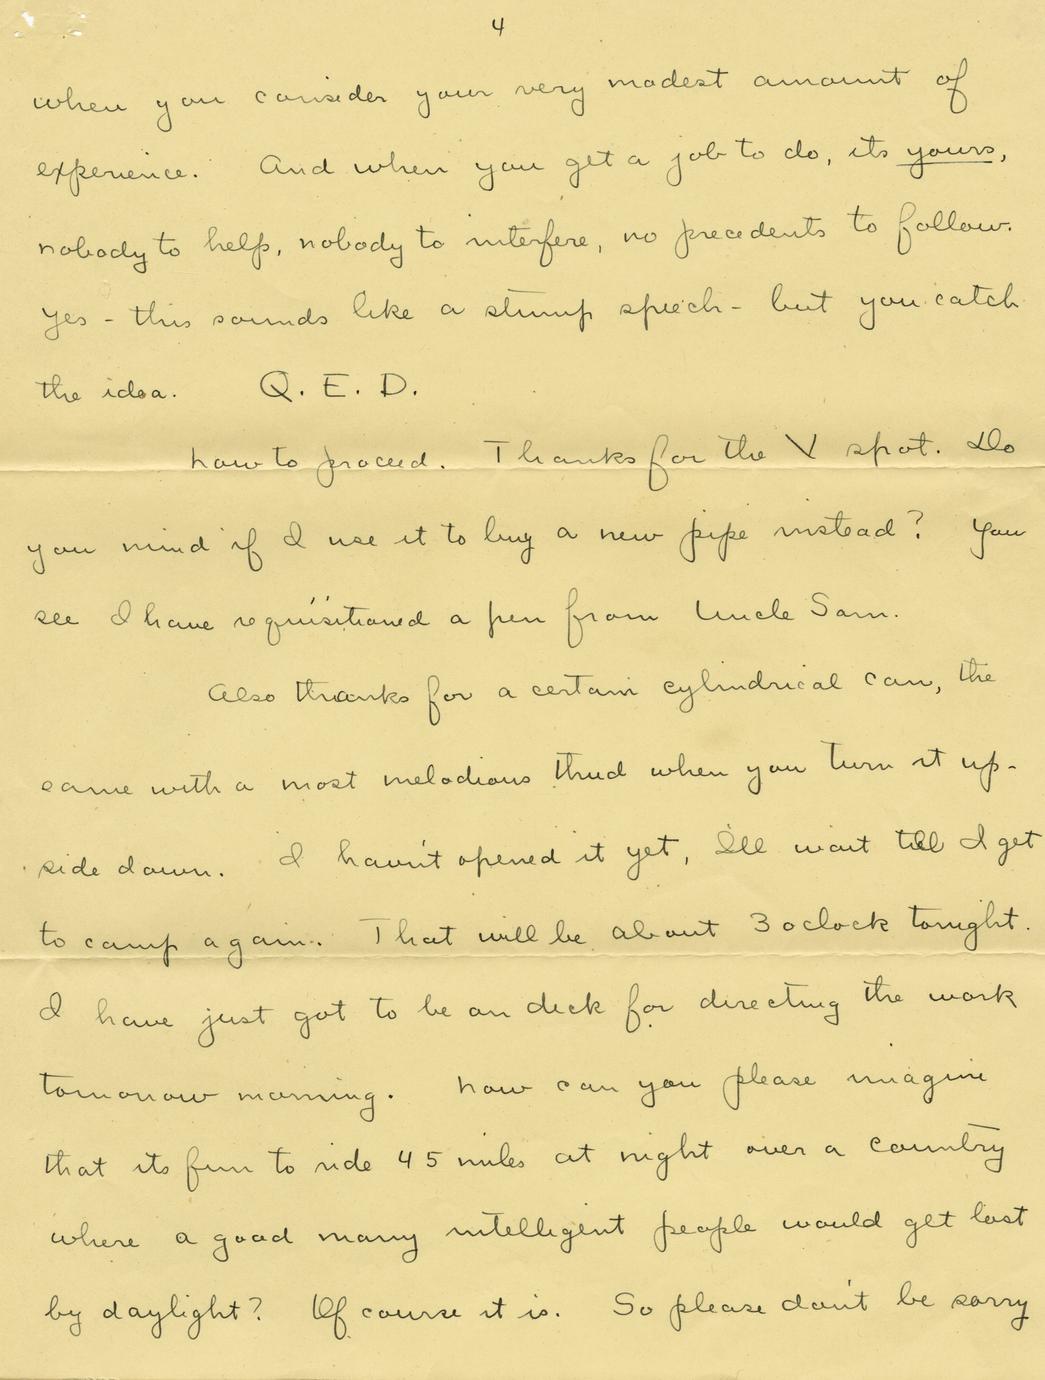 4
when you consider your very modest amount of
experience. And when you get a job to do, its yours,
nobody to help, nobody to interfere, no precedents to follow.
Yes - this sounds like a stump speech - but you catch
the idea. Q. E. D.
Now to proceed. Thanks for the V spot. Do
you mind if I use it to buy a new pipe instead? You
see I have requisitioned a pen from Uncle Sam.
Also thanks for a certain cylindrical can, the
same with a most melodious thud when you turn it up-
side down. I havn't opened it yet, I'll wait till I get
to camp again. That will be about 3 oclock tonight.
I have just got to be on deck for directing the work
tomorrow morning. Now can you please imagine
that its fun to ride 45 miles at night over a country
where a good many intelligent people would get lost
by daylight? Of course it is. So please don't be sorry